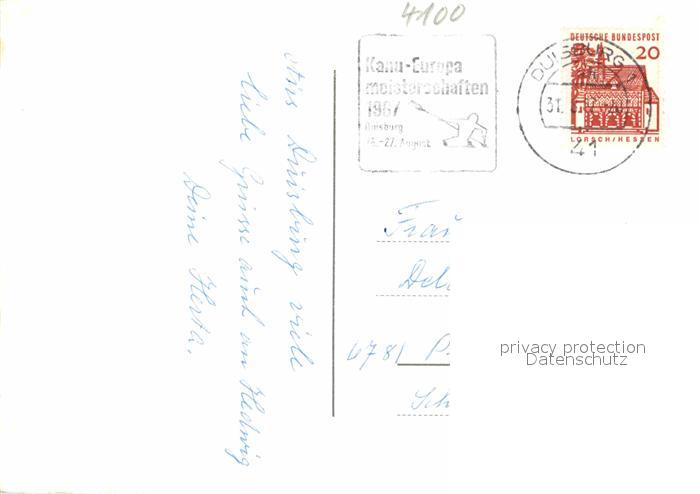 4100
Kanu-Europa
meisterschaften
1967
Duisburg
-27. August
DEUTSCHE BUNDESPOST
20
LORSCH/HESSEN
DUISBURG 1
31.
41
Aus Duisburg viele
liebe Grüsse auch an Hedwig
Deine Herta.
Frau
6781 P.
Sch
privacy protection
Datenschutz